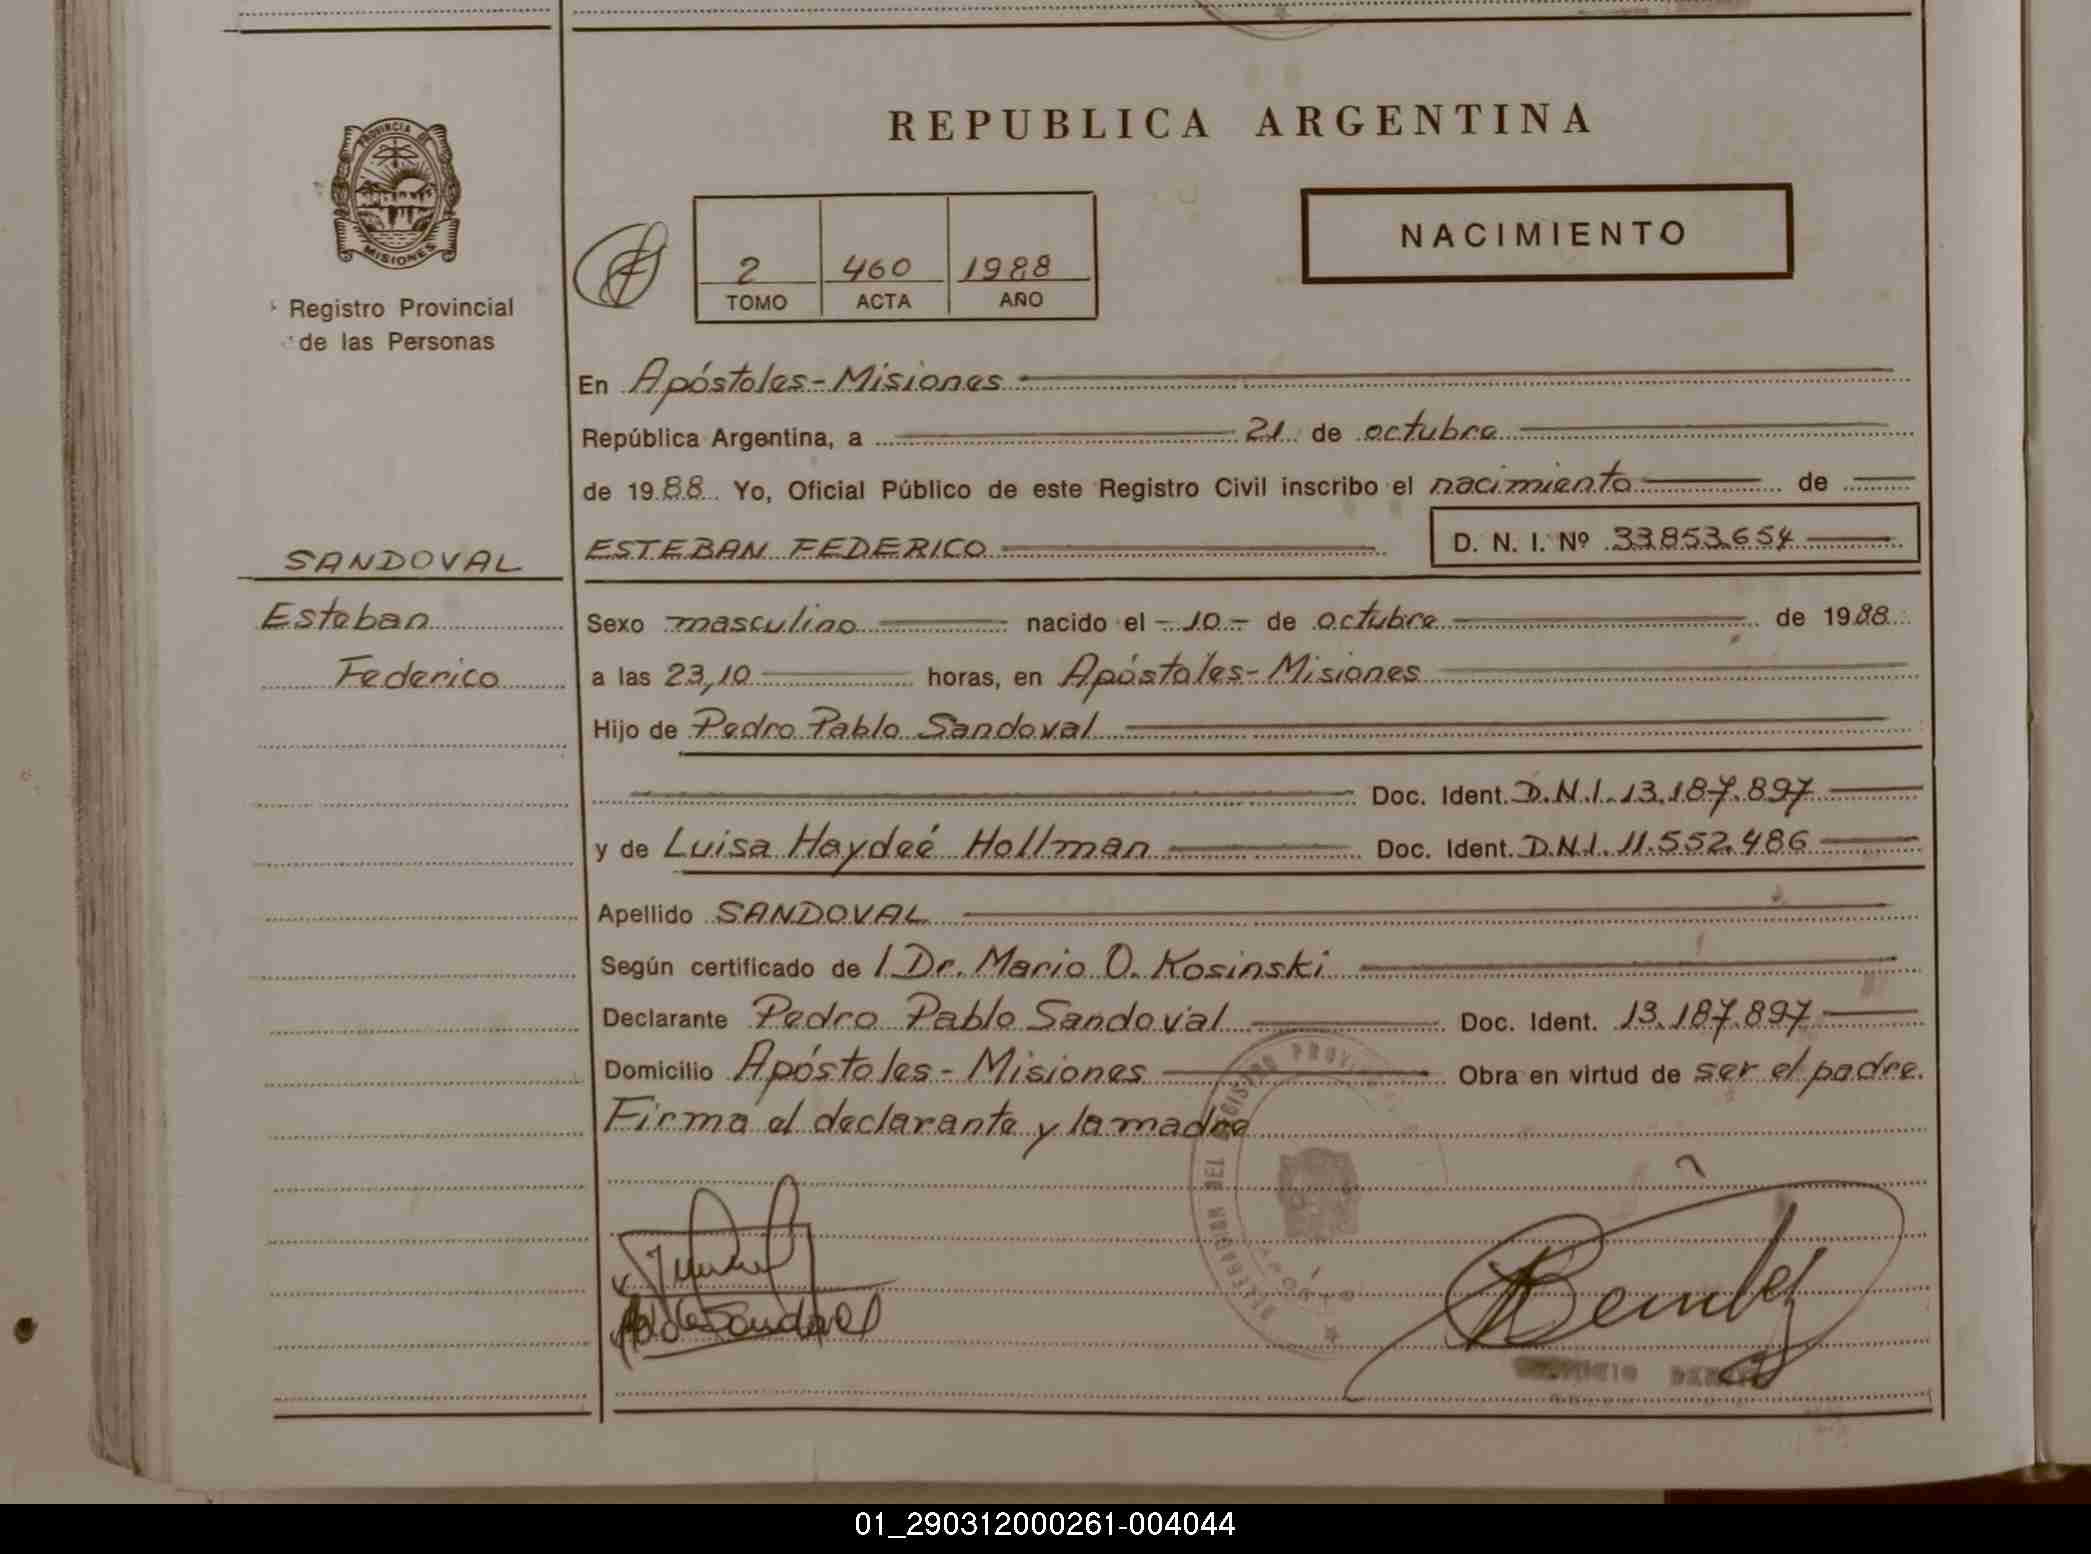 PROVINCIA DE
MISIONES
Registro Provincial
de las Personas
REPUBLICA ARGENTINA
NACIMIENTO
2 460 1988
TOMO ACTA AÑO
En Apóstoles-Misiones
República Argentina, a 21 de octubre
de 1988 Yo, Oficial Público de este Registro Civil inscribo el nacimiento de
SANDOVAL
ESTEBAN FEDERICO D. N. I. Nº 33.853.654
Esteban
Federico
Sexo masculino nacido el -10- de octubre de 1988
a las 23,10 horas, en Apóstoles-Misiones
Hijo de Pedro Pablo Sandoval
Doc. Ident. D.N.I. 13.187.897
y de Luisa Haydeé Hollman Doc. Ident. D.N.I. 11.552.486
Apellido SANDOVAL
Según certificado de l Dr. Mario O. Kosinski
Declarante Pedro Pablo Sandoval Doc. Ident. 13.187.897
Domicilio Apóstoles-Misiones Obra en virtud de ser el padre.
Firma el declarante y la madre
DEL REGISTRO
01_290312000261-004044